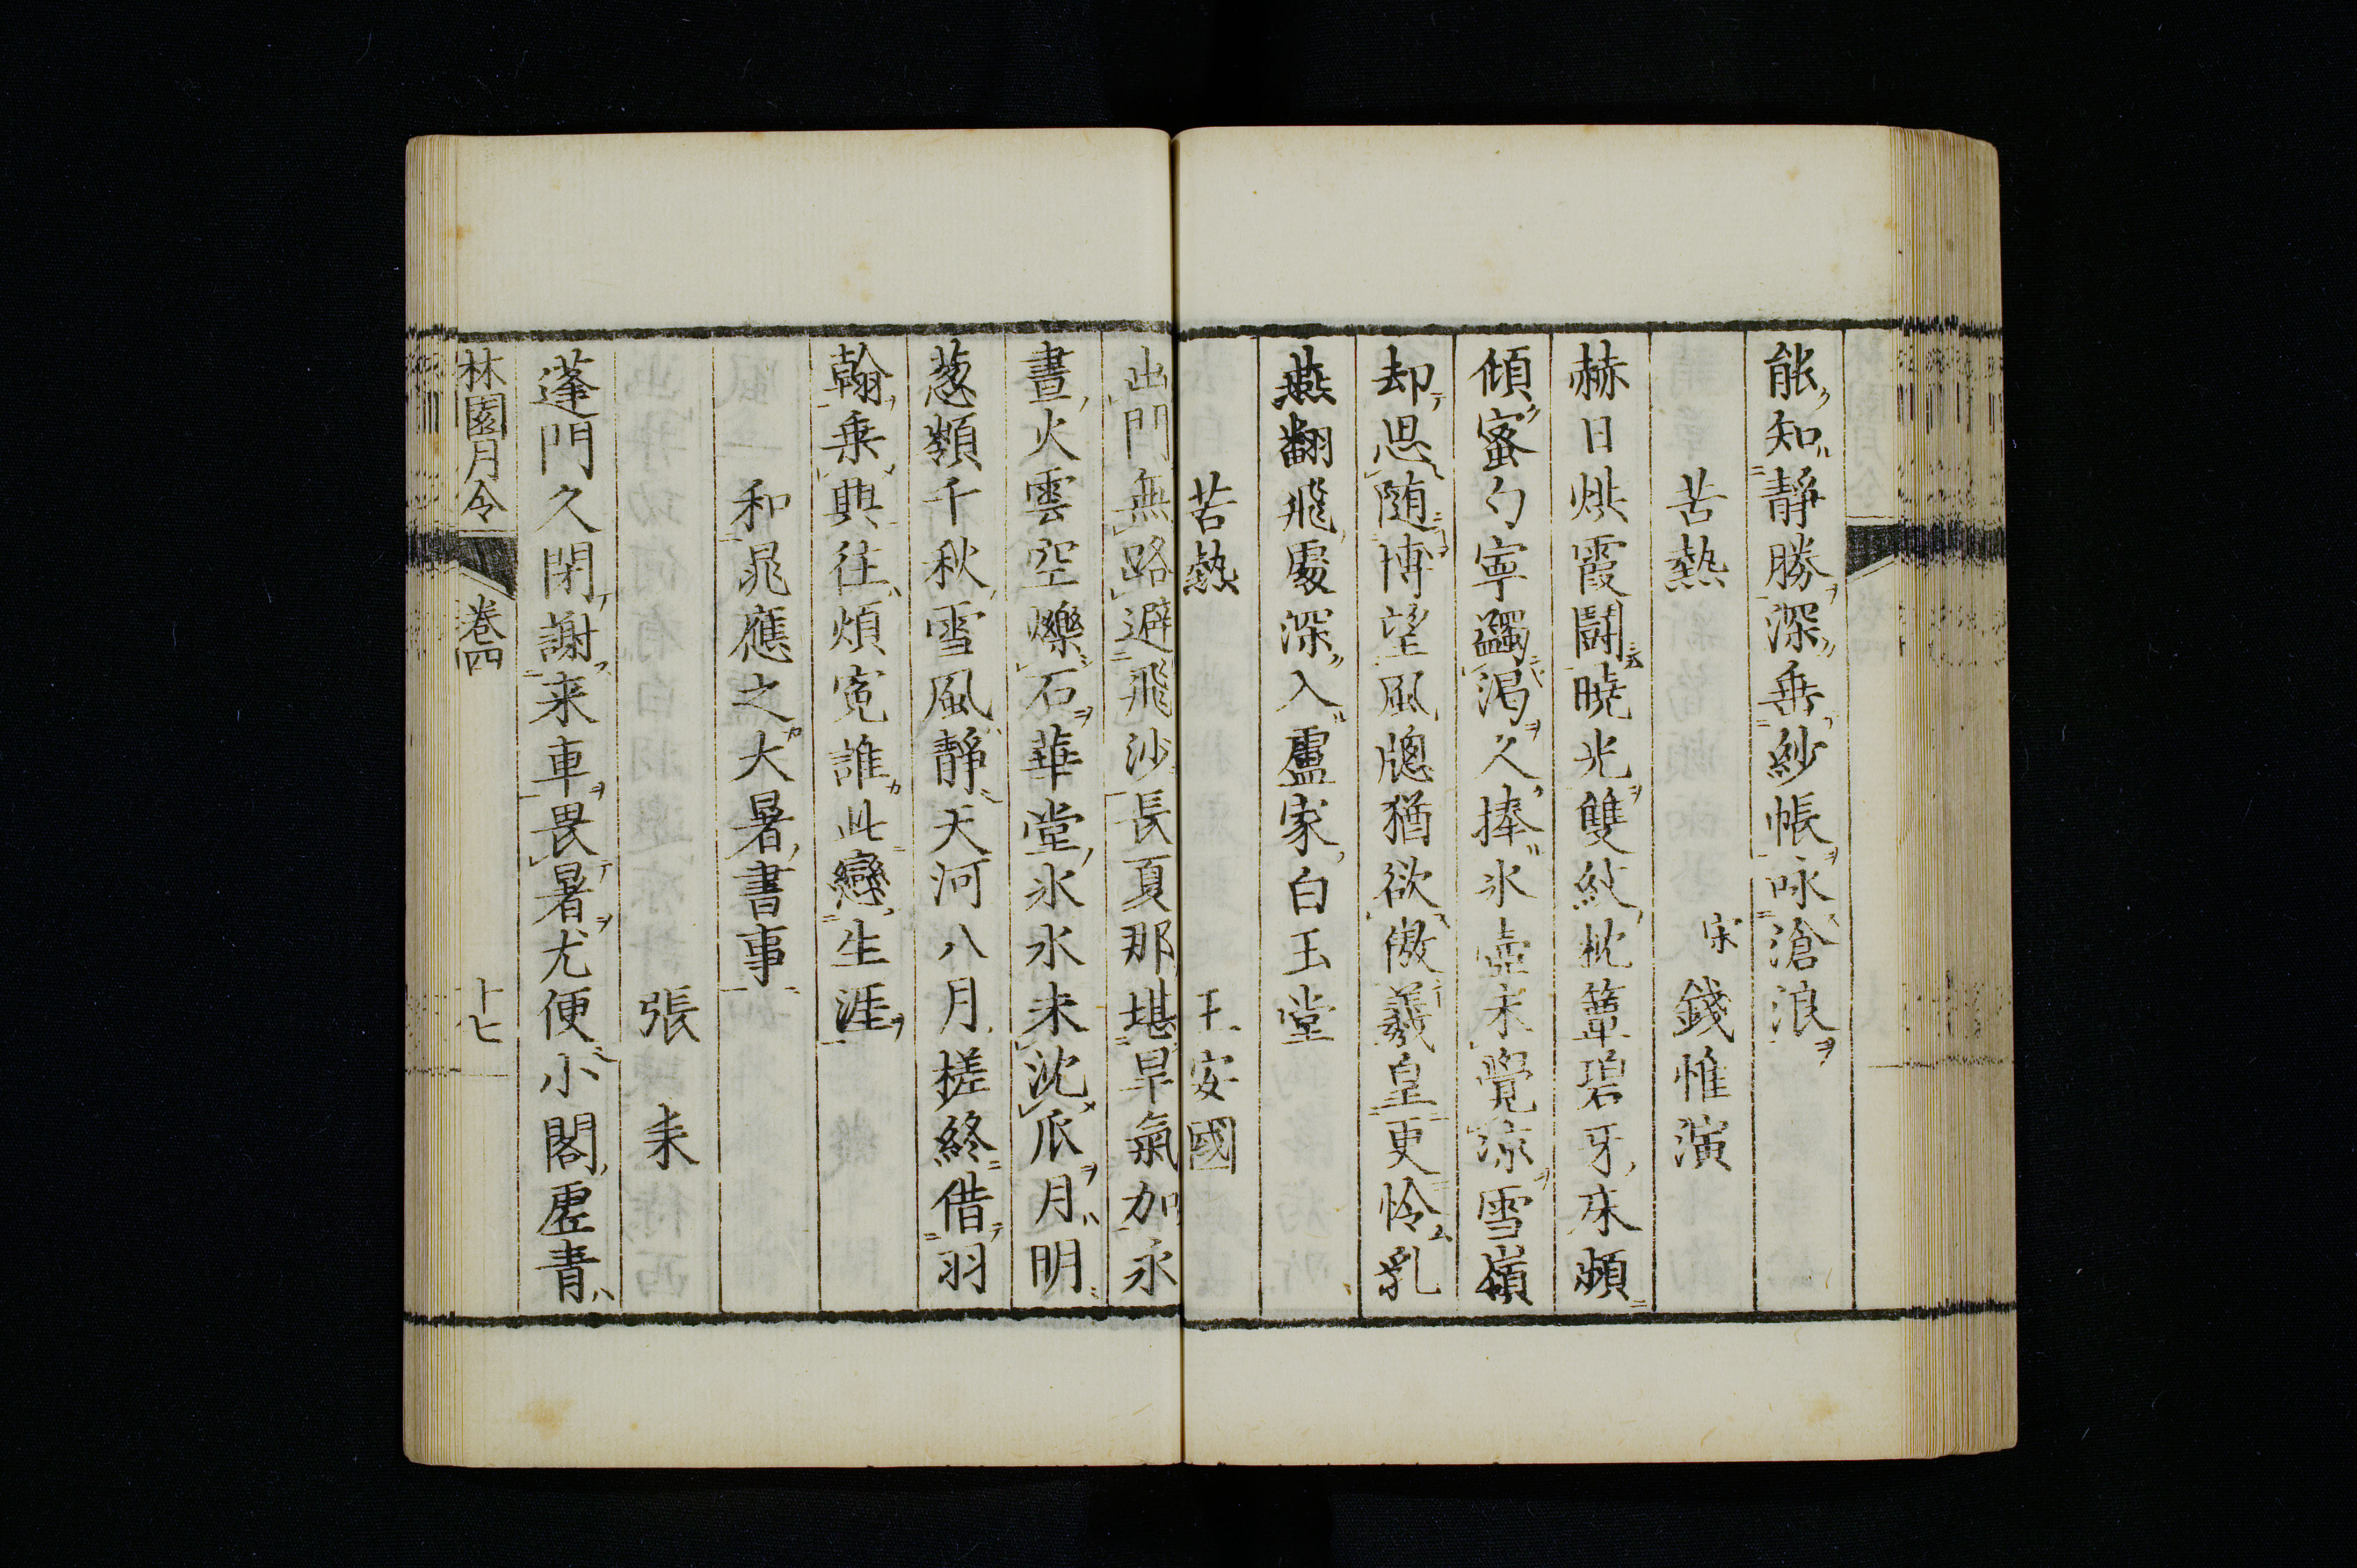 能知靜勝深垂紗帳咏滄浪
苦熱　宋 錢惟演
赫日烘霞鬬曉光雙紋枕簟碧牙床頻
傾蜜勺寧蠲渴久捧氷壺未覺涼雪嶺
却思随博望風牕猶欲傲羲皇更怜乳
燕翻飛處深入盧家白玉堂
苦熱　王安國
出門無路避飛沙長夏那堪旱氣加永
晝火雲空爍石華堂氷水未沈瓜月明
葱嶺千秋雪風靜天河八月槎終借羽
翰乗興往煩寃誰此戀生涯
和晁應之大暑書事
張耒
蓬門久閉謝来車畏暑尤便小閣虗青
林園月令　卷四　十七